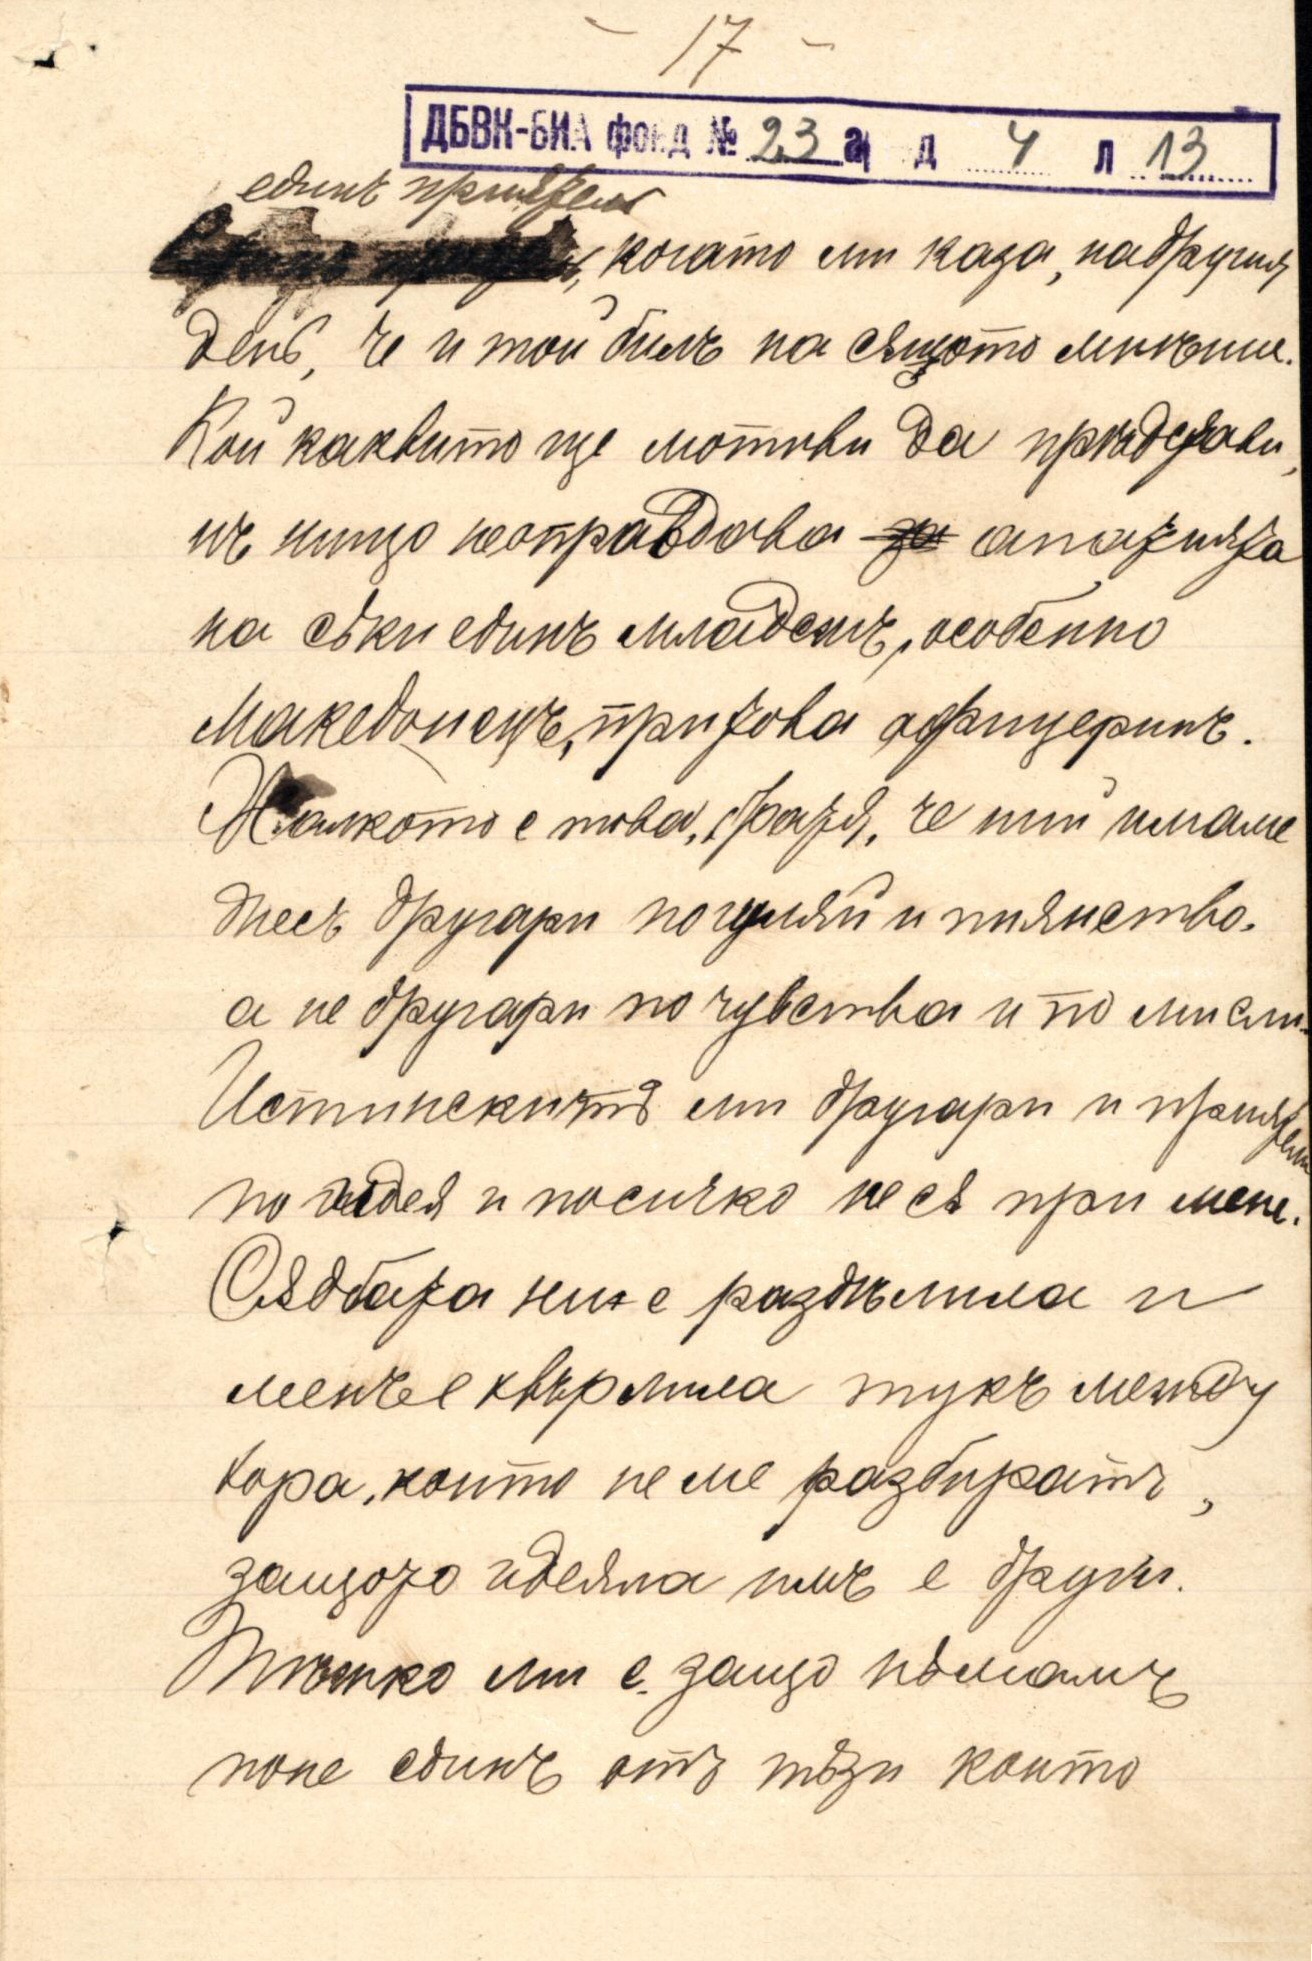 - 17 -
ДБВК-БИА фонд № 23 а д 4 л 13
единъ приятель
когато ми каза, на другия
день, че и той билъ на сѫщото мнѣние.
Кой каквито ще мотиви да прѣдстави,
нъ нищо неоправдава за апатията
на сѣки единъ младежъ, особенно
Македонецъ, при това офицеринъ.
Жалкото е това, братя, че ний имаме
днесъ другари по гуляй и пиянство.
а не другари по чувства и по мисли.
Истинскитѣ ми другари и приятели
по идея и по сичко не сѫ при мене.
Сѫдбата ни е раздѣлила и
менъ е хвърлила тукъ между
хора, които не ме разбиратъ,
защото идеяла имъ е другъ.
Тѣжко ми е, защо нѣмамъ
поне единъ отъ тѣзи които